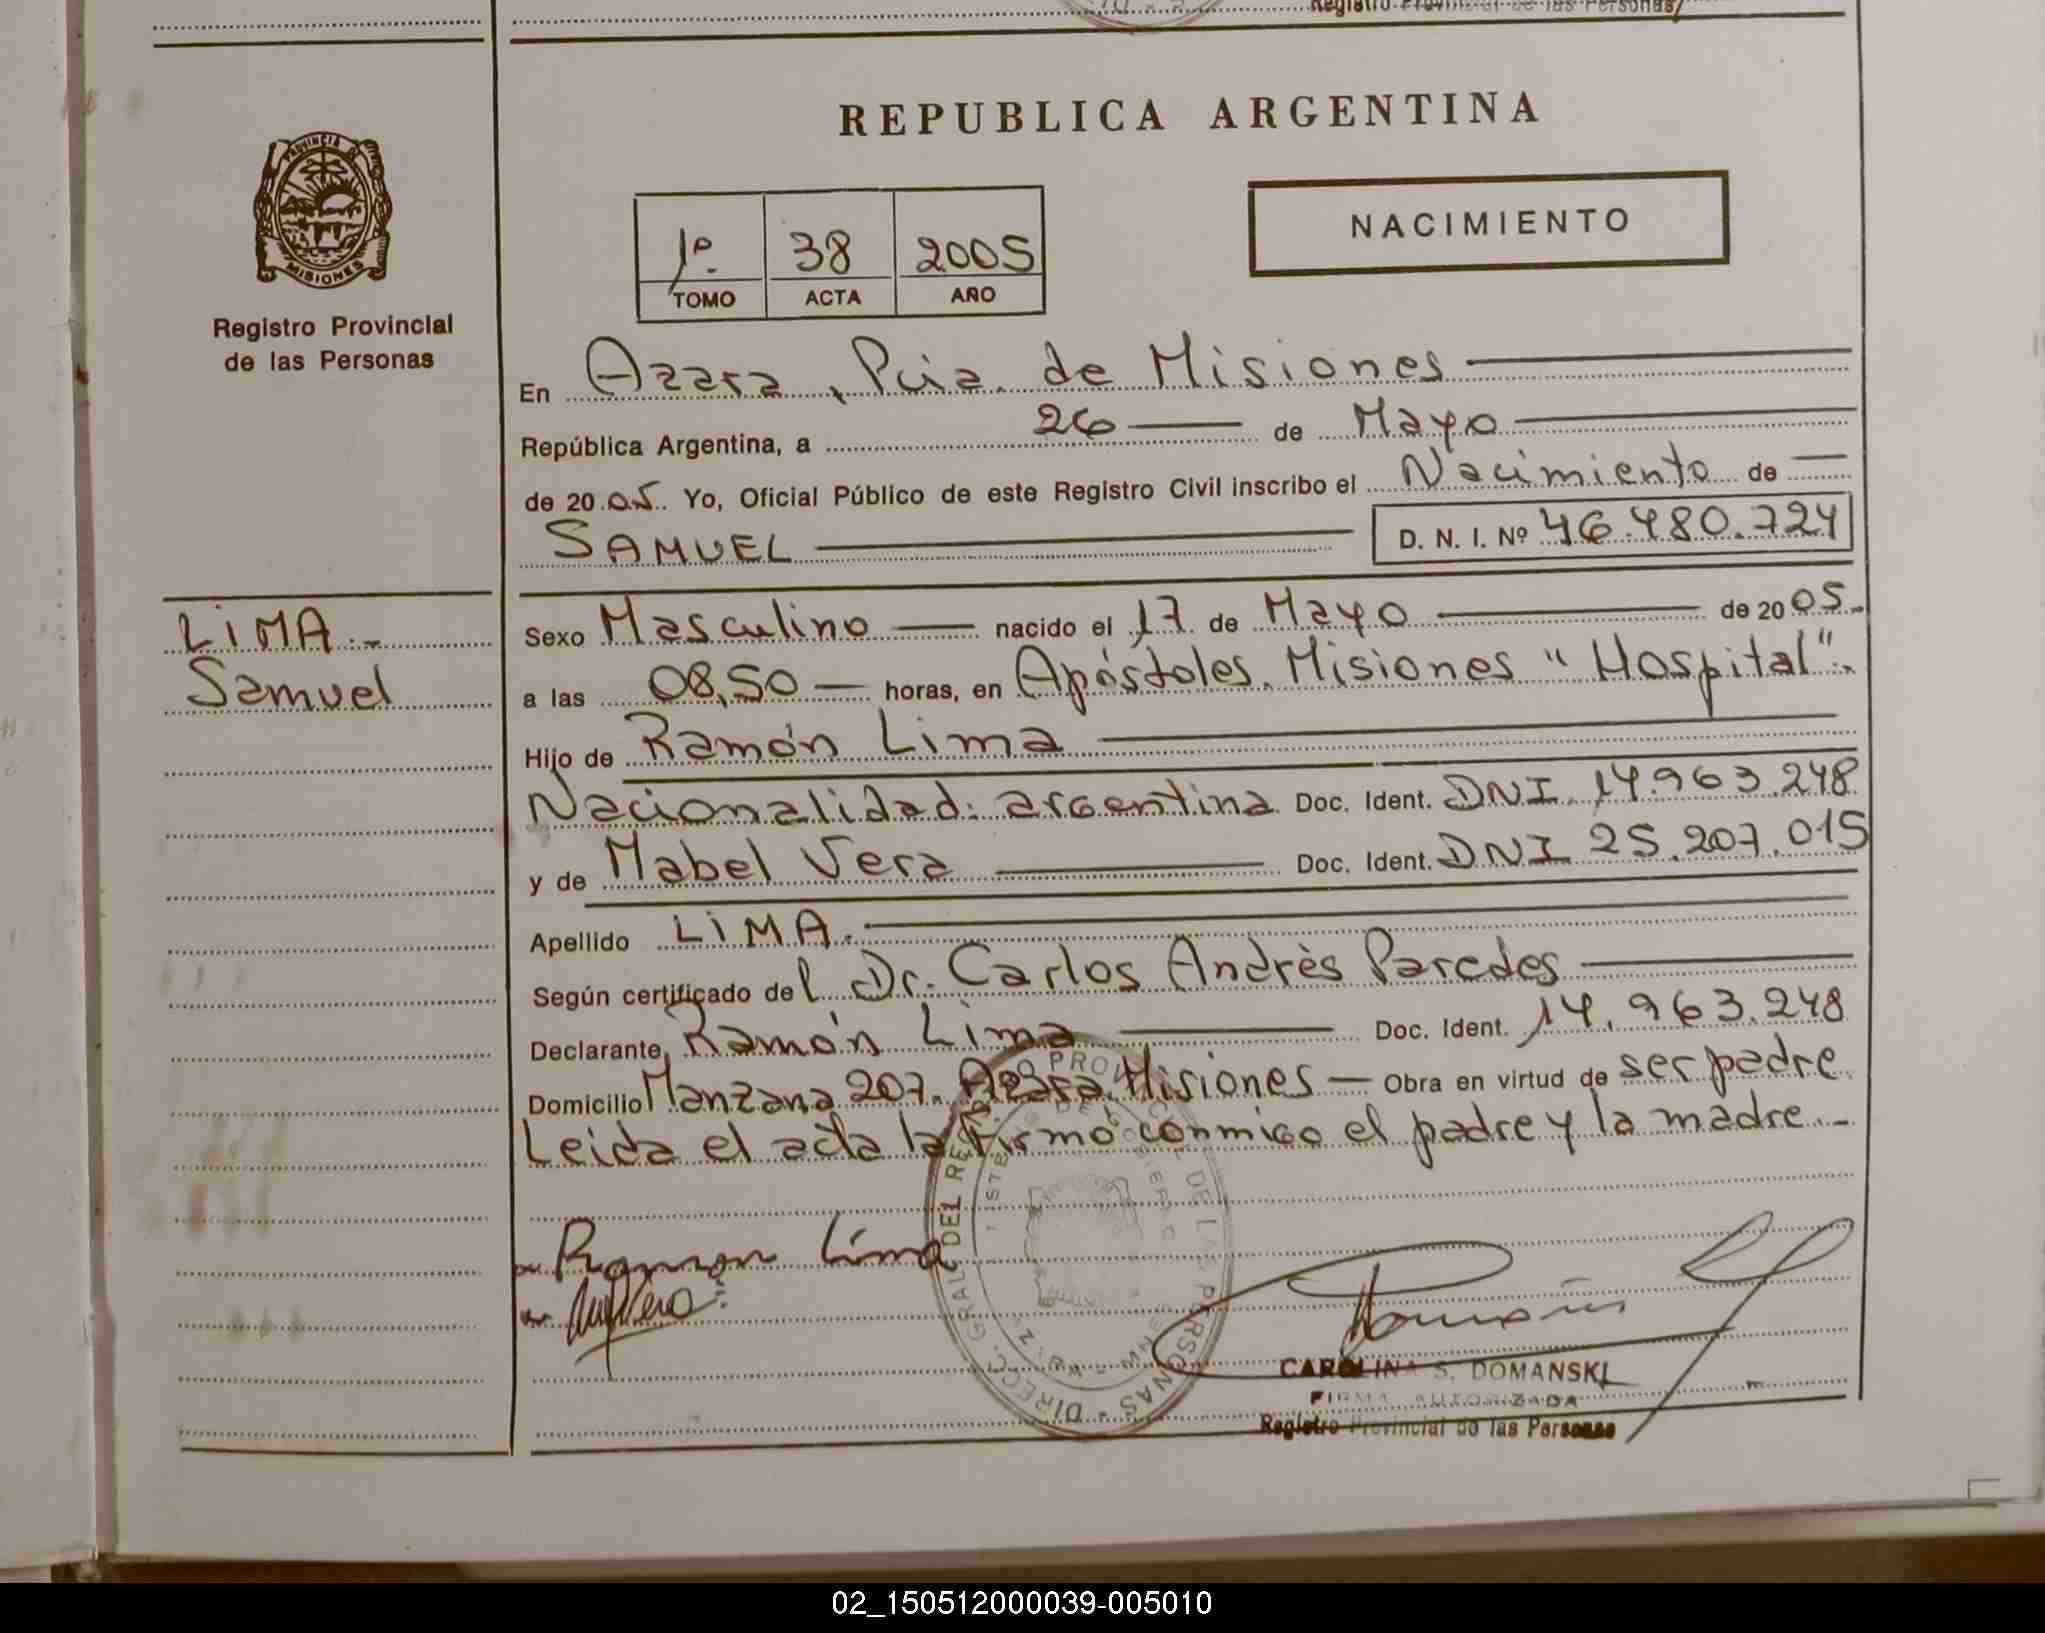 Registro Provincial de las Personas
REPUBLICA ARGENTINA
PROVINCIA DE
MISIONES
Registro Provincial
de las Personas
1º 38 2005
TOMO ACTA AÑO
NACIMIENTO
En Azara, Pcia. de Misiones
República Argentina, a 26 de Mayo
de 2005. Yo, Oficial Público de este Registro Civil inscribo el Nacimiento de
SAMUEL D. N. I. Nº 46.480.724
LIMA.-
Samuel
Sexo Masculino nacido el 17 de Mayo de 2005.
a las 08,50 horas, en Apóstoles. Misiones "Hospital".
Hijo de Ramón Lima
Nacionalidad: argentina Doc. Ident. DNI. 14.963.248
y de Mabel Vera Doc. Ident. DNI 25.207.015
Apellido LIMA.
Según certificado del Dr. Carlos Andrès Paredes
Declarante Ramón Lima Doc. Ident. 14.963.248
Domicilio Manzana 207. Azara. Misiones Obra en virtud de ser padre
Leida el acta la firmó conmigo el padre y la madre.-
Ramon Lima
CAROLINA S. DOMANSKI
FIRMA AUTORIZADA
Registro Provincial de las Personas
02_150512000039-005010